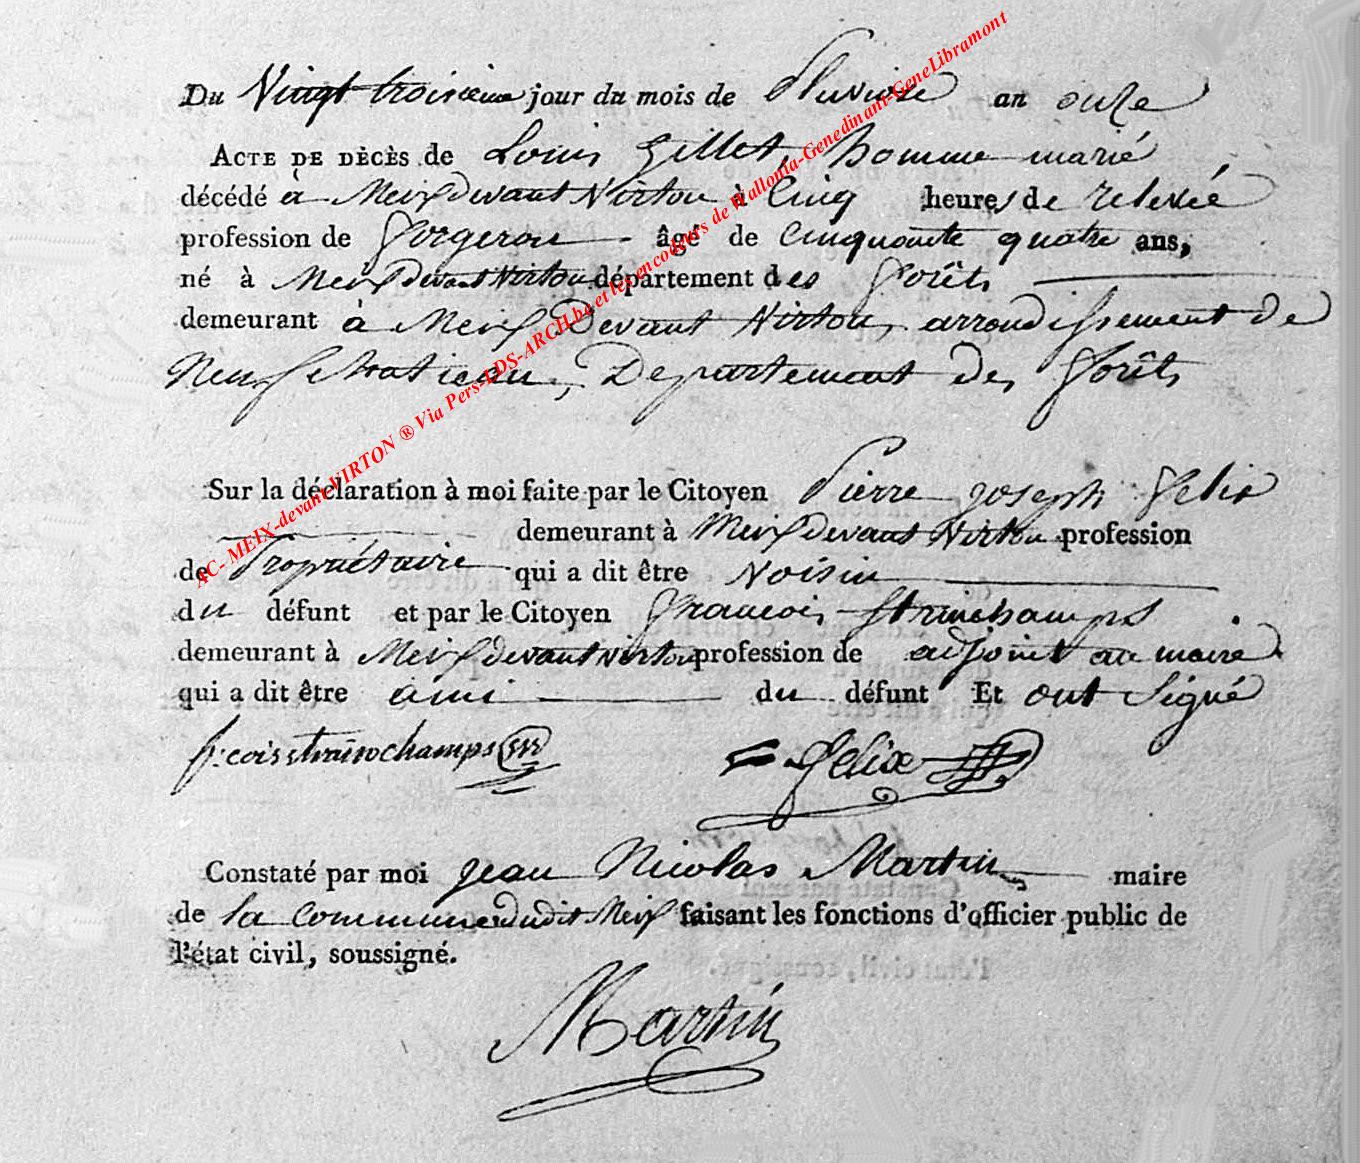 Du Vingt troisieme jour du mois de Pluviose an onze
ACTE DE DÉCÈS de Louis Gillet, homme marié
décédé à Meix devant Virton à Cinq heures de relevée
profession de forgeron âgé de Cinquante quatre ans,
né à Meix devant Virton département des forêts
demeurant à Meix Devant Virton, arrondissement de
Neufchatieau, Departement des forêts
Sur la déclaration à moi faite par le Citoyen Pierre joseph felix
demeurant à Meix devant Virton profession
de Propriétaire qui a dit être Voisin
du défunt et par le Citoyen francois
demeurant à Meix devant Virton profession de adjoint au maire
qui a dit être ami du défunt Et ont Signé
f.cois
felix
Constaté par moi jean Nicolas Martin maire
de la commune dudit Meix faisant les fonctions d'officier public de
l'état civil, soussigné.
Martin
AC- MEIX-devant-VIRTON ® Via Pers-LDS-ARCH.be et les encodeurs de Wallonia-Genedinant-GeneLibramont